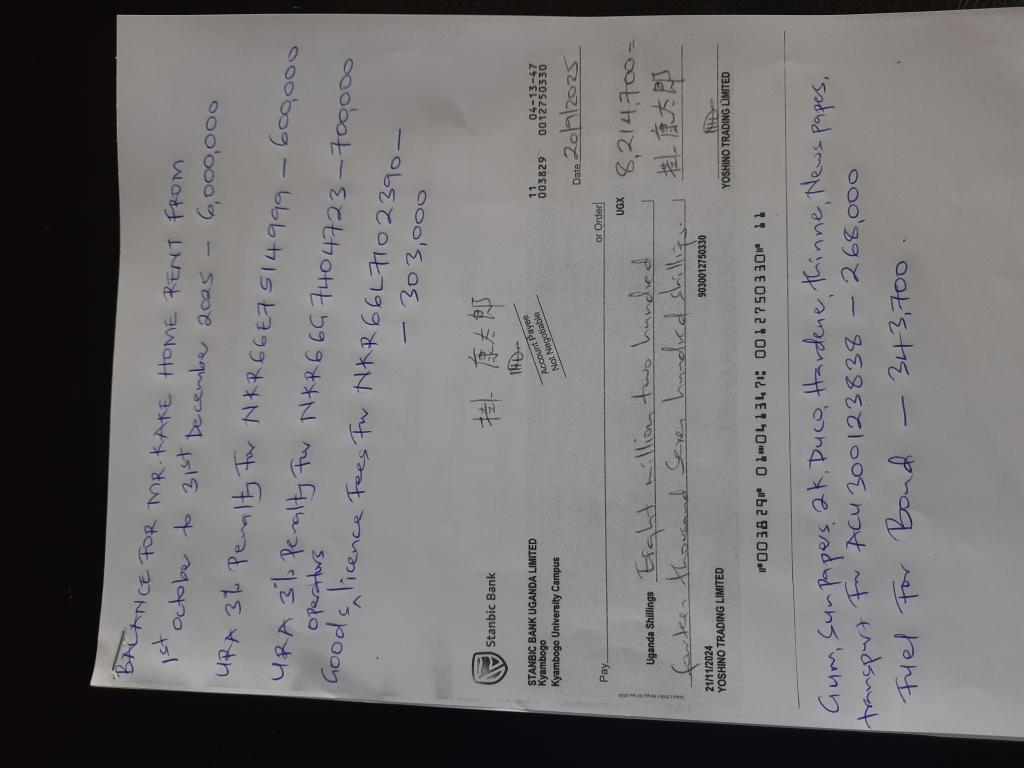 BALANCE FOR MR. KAKE HOME RENT FROM
1st october to 31st December 2025 - 6,000,000
URA 3% Penalty For NKR66E7514999 - 600,000
URA 3% Penalty For NKR66G7404723 - 700,000
operators
Goods licence Fees For NKR66L7102390 -
- 303,000
掛 康太郎
Account Payee
Not Negotiable
Stanbic Bank
STANBIC BANK UGANDA LIMITED
Kyambogo
Kyambogo University Campus
11 04-13-47
003829 0012750330
Date 20/11/2025
Pay
or Order
Uganda Shillings Eight million two hundred
UGX 8,214,700=
fourteen thousand Seven hundred shillings
掛 康太郎
21/11/2024
YOSHINO TRADING LIMITED
9030012750330
YOSHINO TRADING LIMITED
"003829" 01"041347: 0012750330" 11
Gum, Sun papers, 2k, Duco, Hardene, thinne, News papes,
transport For ACU300123838 - 268,000
Fuel For Bond - 343,700